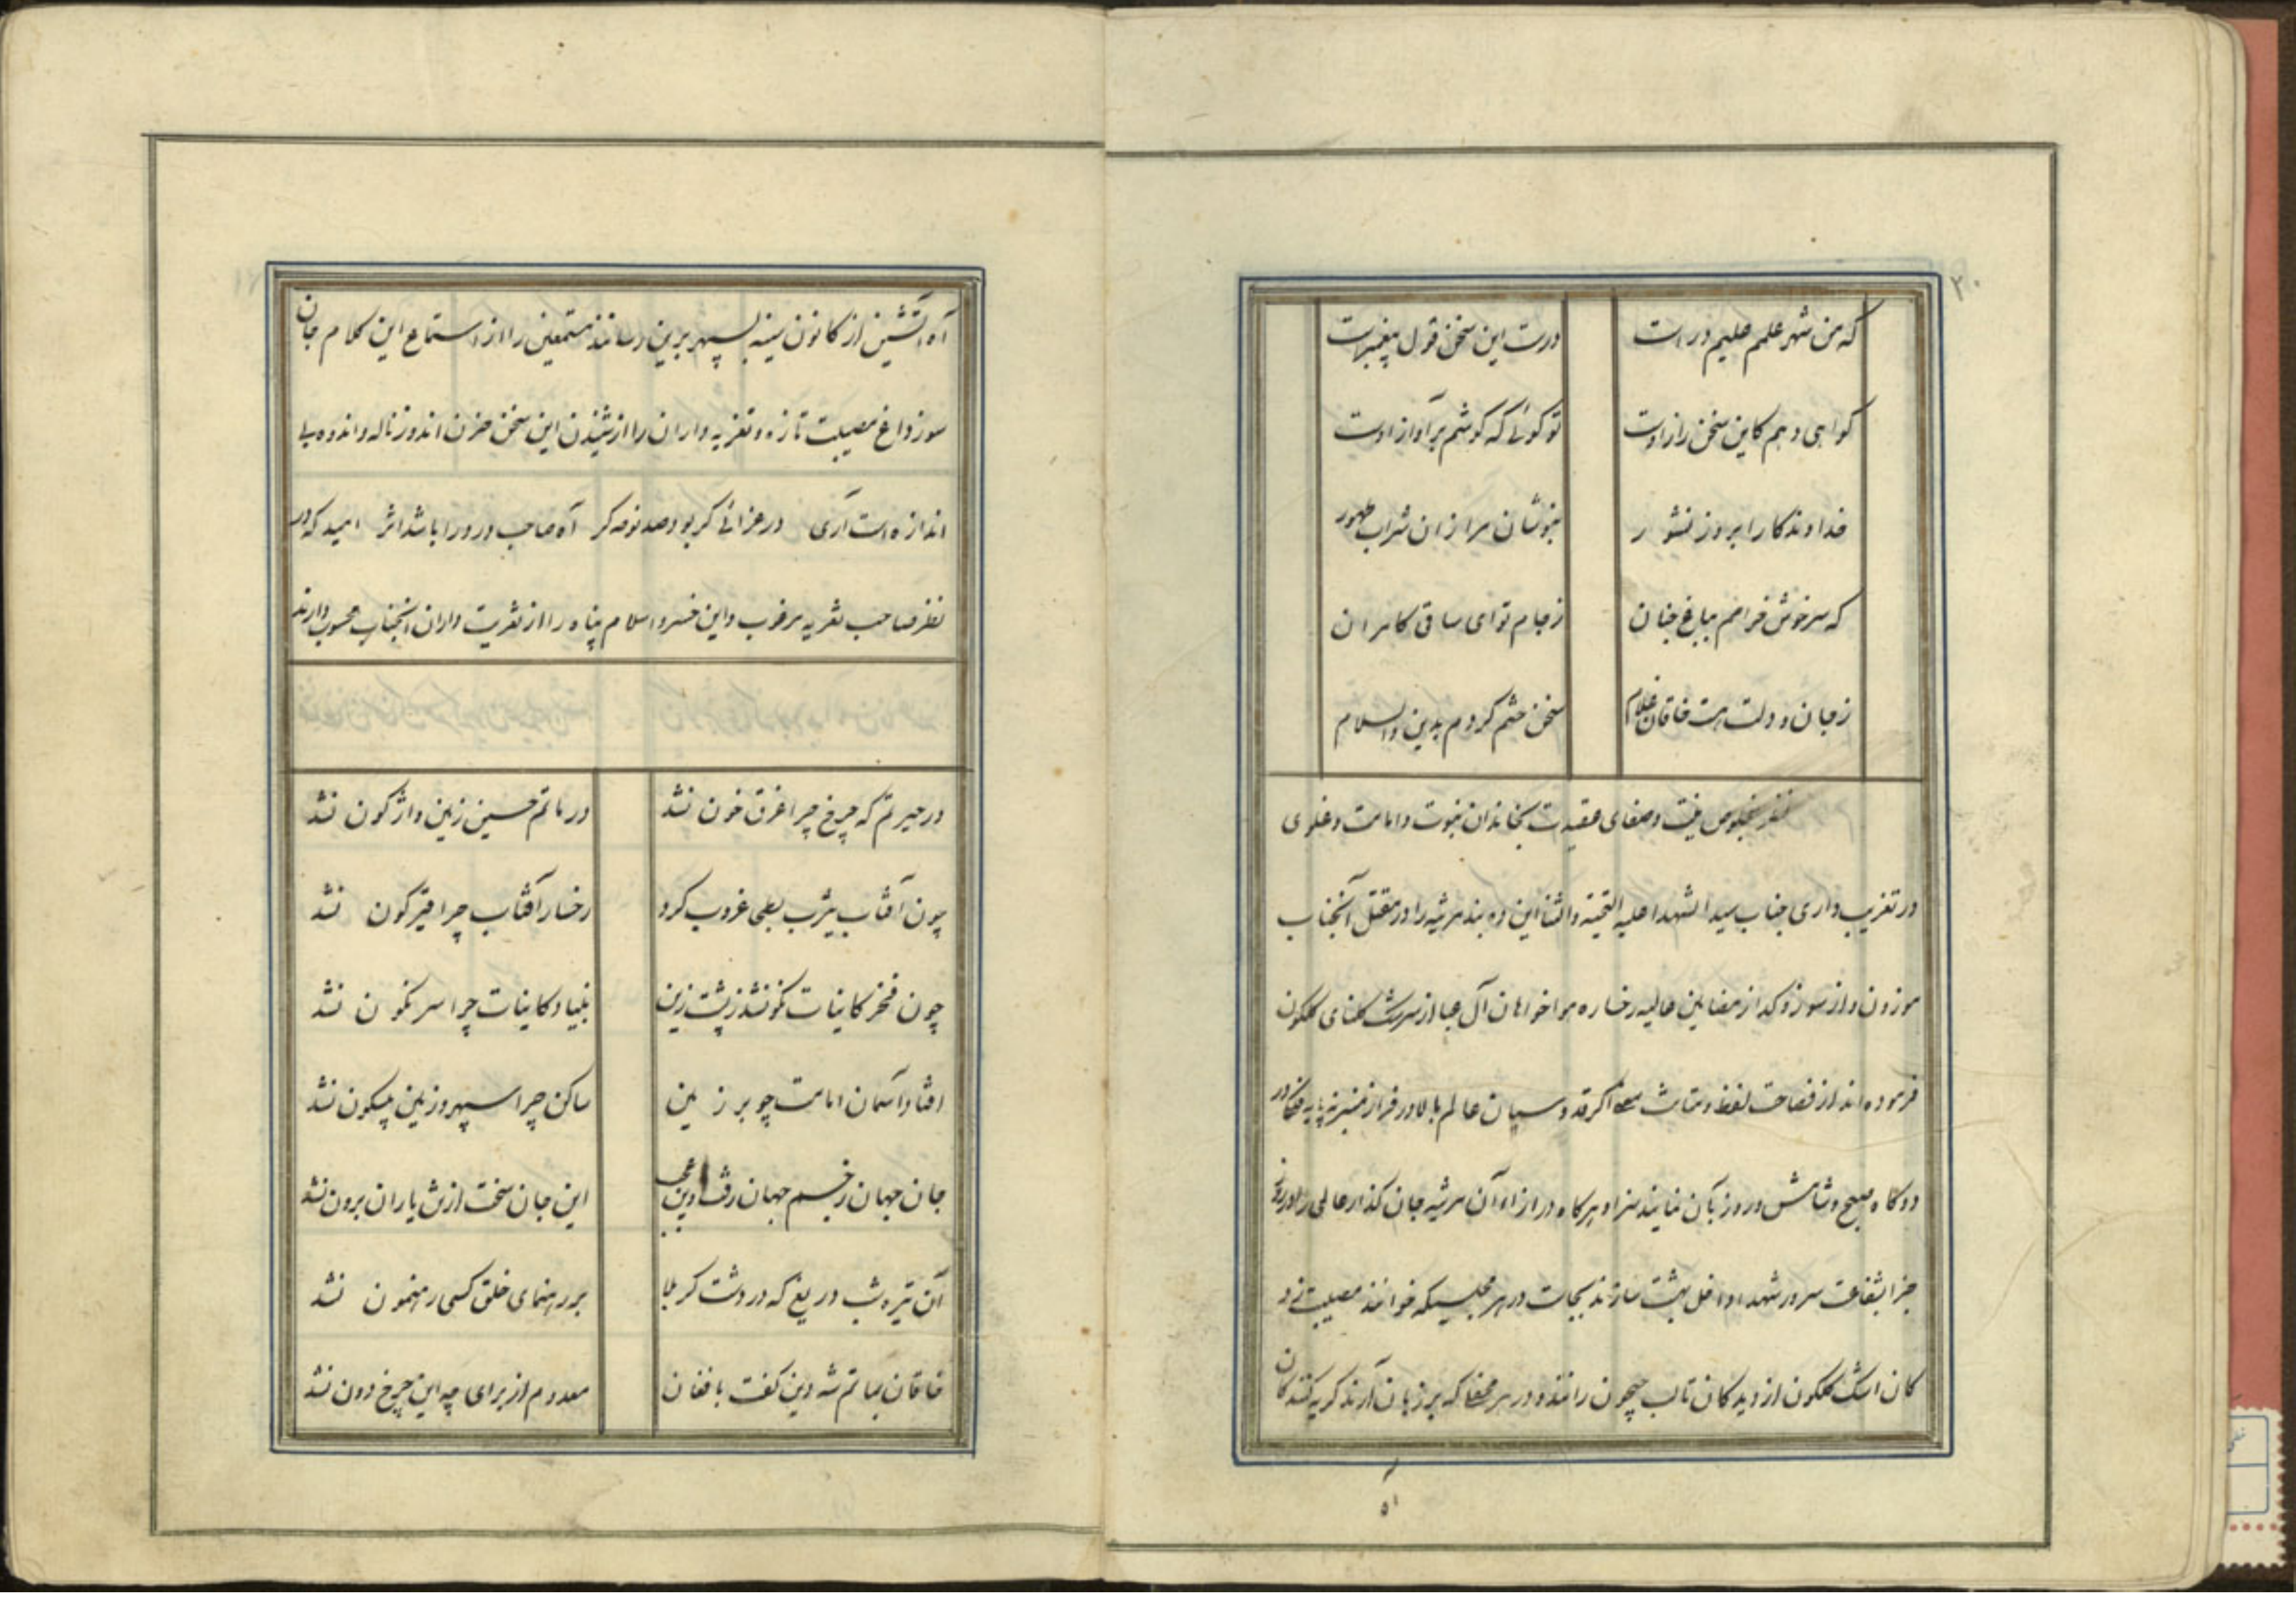 ۲۰
که من شهر علمم علیم در است درست این سخن قول پیغمبرست
کواهی دهم کاین سخن راز اوست تو کوئی که کوشم بر آواز اوست
خداوندکارا بروز نشور بنوشان مرا زان شراب طهور
که سرخوش خرامم بباغ جنان ز جام تو ای ساقی کامران
ز جان و دلت هست خاقان غلام سخن ختم کردم بدین والسلام
نظر بخلوص نیت و صفای عقیدت بخاندان نبوت و امامت و غلوی
در تعزیت داری جناب سیدالشهدا علیه التحیته والثنا این ده بند مرثیه را در مقتل آنجناب
موزون و از سوز و کداز مضامین عالیه رخساره هواخواهان آل عبا از سرشک کلکون
فرموده اند از فصاحت لفظ و متانت معنی اکر قدوسیان عالم بالا در فراز منبر نه پایه
دو کاه صبح و شامش ورد زبان نمایند سزاوهرکاه در ازاء آن مرثیه جان کداز عالمی را در روز
جزا بشفاعت سرور شهدا داخل بهشت سازند بجاست در هر مجلسیکه خوانند مصیبت زد
کان اشک کلکون از دیدکان تا لب جیحون رانند و در هر محفل که بر زبان آرند کریه کنندکان
آه
آه آتشین از کانون سینه بسپهر برین رسانند مستمعین را از استماع این کلام جان
سوز داغ مصیبت تازه و تعزیه داران را از شنیدن این سخن حزن اندوز ناله و اندوه بی
اندازه است آری در عزائی کر بود صد نوحه کر آه صاحب درد را باشد اثر امید که در
نظر صاحب تعزیه مرغوب و این خسرو اسلام پناه را از تعزیت داران آنجناب محسوب دارند
در حیرتم که چرخ چرا غرق خون نشد در ماتم حسین زمین واژکون نشد
چون آفتاب یثرب بطحی غروب کرد رخسار آفتاب چرا قیرکون نشد
چون فخر کاینات نکون شد ز پشت زین بنیاد کاینات چرا سرنکون نشد
افتاد آسمان امامت چو بر زمین ساکن چرا سپهر و زمین بیسکون نشد
جان جهان ز جسم جهان رفت این عجب این جان سخت از تن یاران برون نشد
آن تیره شب دریغ که در دشت کربلا بر رهنمای خلق کسی رهنمون نشد
خاقان بماتم شه دین کفت با فغان معدوم از برای چه این چرخ دون نشد